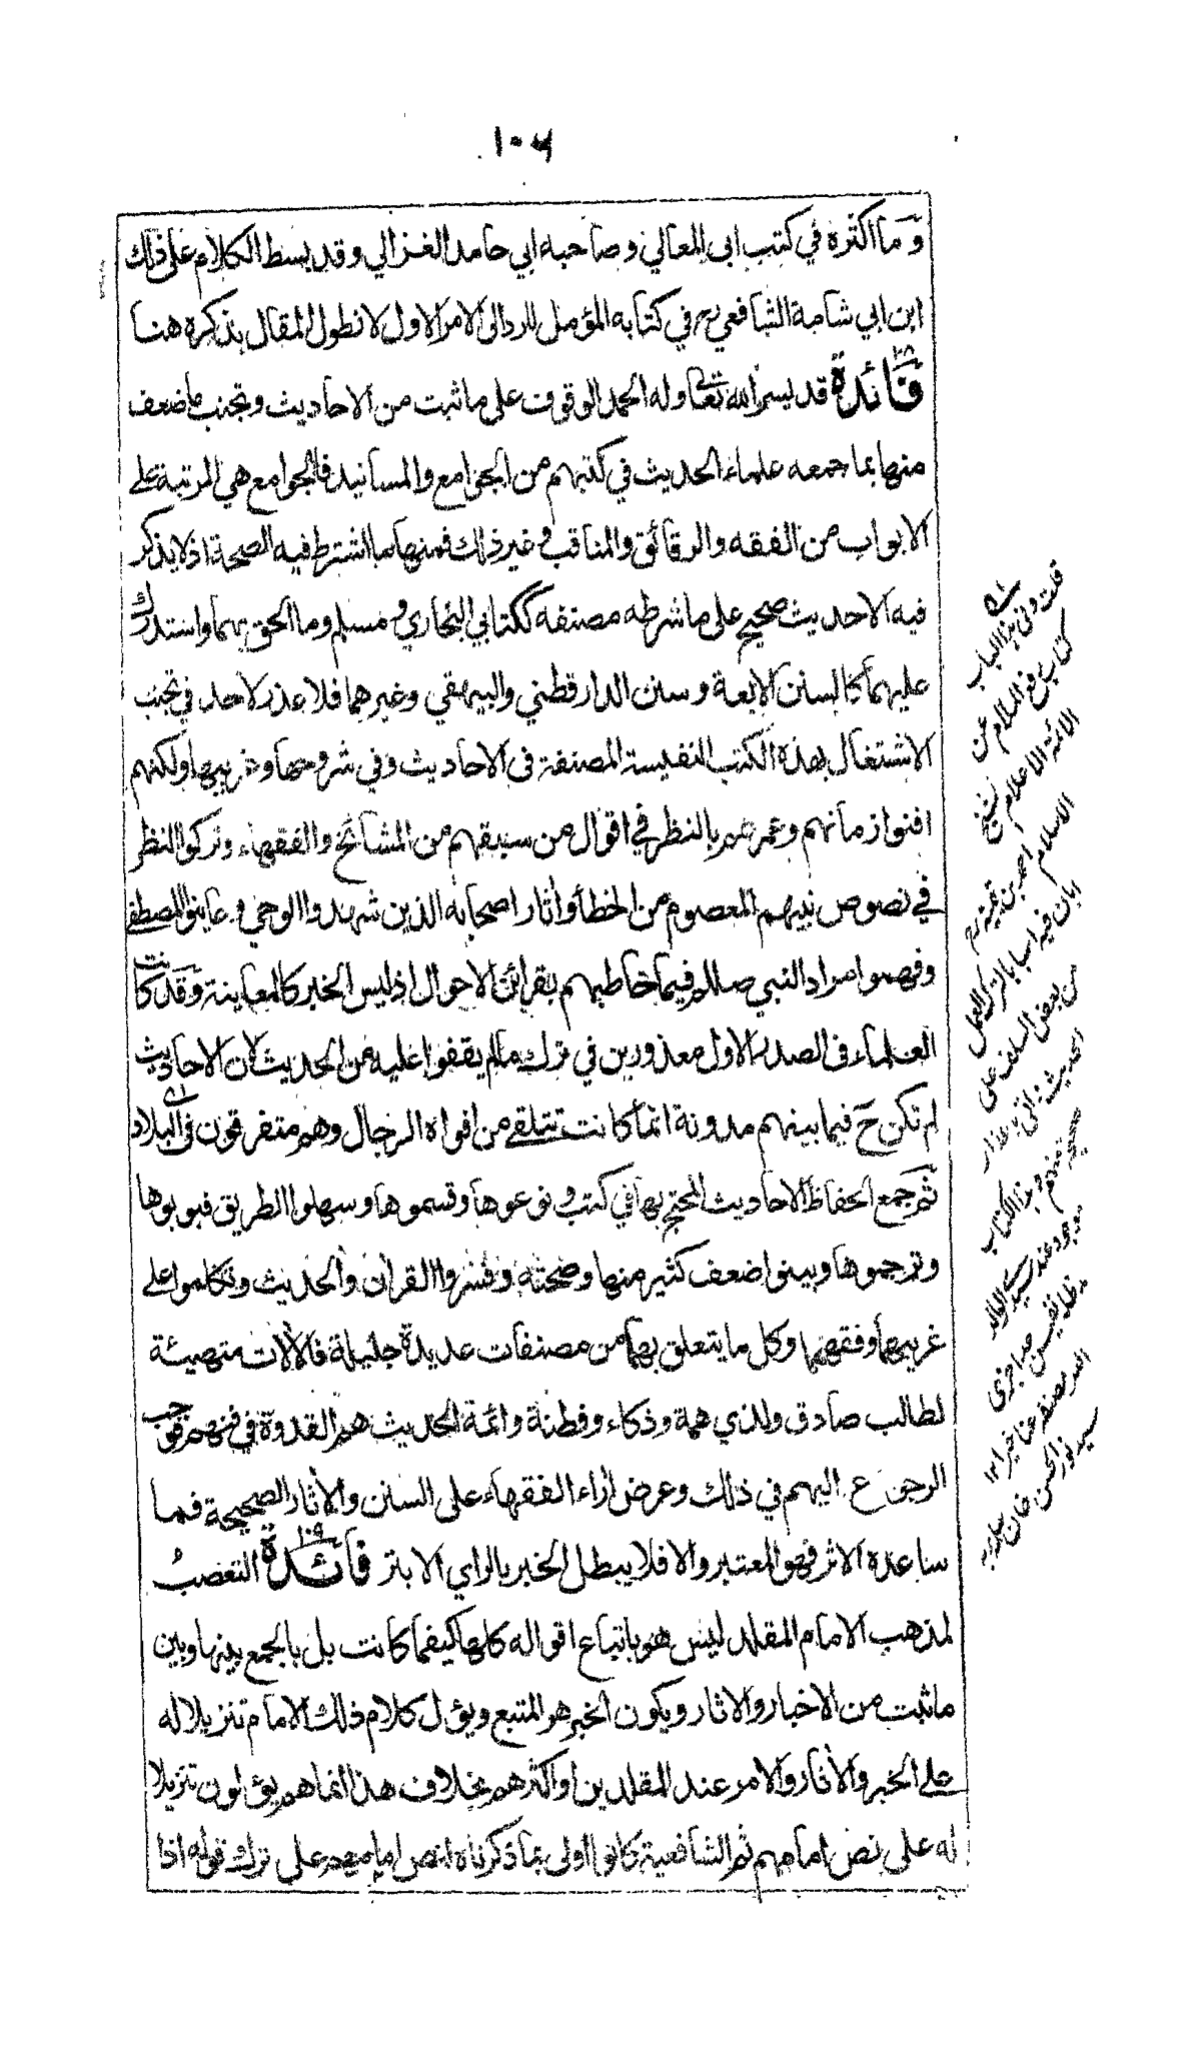 ۱۰۶
وَمَا اكثره في كتب ابى المعالي وصاحبه ابي حامد الغزالي وقد بسط الكلام على ذلك
ابن ابي شامة الشافعي رح في كتابه المؤمل للرد الى الامر الاول لا نطول المقال بذكره هنا
فَائدة ۱۰۸ قد يسر الله تعالى وله الحمد الوقوف على ما ثبت من الاحاديث وتجنب ما ضعف
منها بما جمعه علماء الحديث في كتبهم من الجوامع والمسانيد فالجوامع هي المرتبة على
الابواب من الفقه والرقائق والمناقب وغير ذلك فمنها ما اشترط فيه الصحة اذ لا يذكر
فيه الا حديث صحيح على ما شرطه مصنفه ككتابي البخاري ومسلم وما الحق بهما واستدرك
عليهما كالسنن الاربعة وسنن الدارقطني والبيهقي وغيرهما فلا عذر لاحد في تجنب
الاشتغال بهذه الكتب النفيسة المصنفة فى الاحاديث وفي شروحها وغريبها ولكنهم
افنوا زمانهم وعمرهم بالنظر في اقوال من سبقهم من المشائخ والفقهاء وتركوا النظر
في نصوص نبيهم المعصوم من الخطأ وأثار اصحابه الذين شهدوا الوحي وعاينوا المصطفى
وفهموا مراد النبي صللم فيما خاطبهم بقرائن الاحوال اذ ليس الخبر كالمعاينة وَقد كانت
العلماء فى الصدر الاول معذورين في ترك ما لم يقفوا عليه من الحديث لان الاحاديث
لم تكن ح فيما بينهم مدونة انما كانت تتلقى من افواه الرجال وهم متفرقون فى البلاد
ثم جمع الحفاظ الاحاديث المحتج بها في كتب ونوعوها وقسموها وسهلوا الطريق فبوبوها
وترجموها وبينوا ضعف كثير منها وصحته وفسروا القرأن والحديث وتكلموا على
غريبهما وفقههما وكل ما يتعلق بهما من مصنفات عديدة جليلة فالألات متهيئة
لطالب صادق ولذي همة وذكاء وفطنة وائمة الحديث هم القدوة في فنهم فوجب
الرجوع اليهم في ذلك وعرض أراء الفقهاء على السنن والأثار الصحيحة فما
ساعده الاثر فهو المعتبر والا فلا يبطل الخبر بالراي الابتر فَائدة ۱۰۹ التعصب
لمذهب الامام المقلد ليس هو باتباع اقواله كلها كيفما كانت بل بالجمع بينها وبين
ما ثبت من الاخبار والاثار ويكون الخبر هو المتبع ويؤل كلام ذلك الامام تنزيلا له
على الخبر والأثار والامر عند المقلدين او اكثرهم بخلاف هذا انما هم يؤلون تنزيلا
له على نص امامهم ثم الشافعية كانوا اولى بما ذكرناه لنص امامهم على ترك قوله اذا
قلت وفي هذا الباب
كتاب رفع الملام عن
الائمة الاعلام لشيخ
الاسلام احمد بن تيمية رح
ابان فيه اسباب ترك العمل
من بعض السلف على
الحديث
وهذا الكتاب
موجود عند سيدي الوالد
مد ظله
الله مصنفه عنا خيرا ۱۲
سيد نور الحسن خان